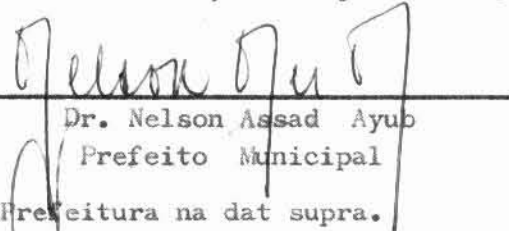 Nelson
Dr. Nelson Assad Ayub
Prefeito Municipal
Prefeitura na dat supra.